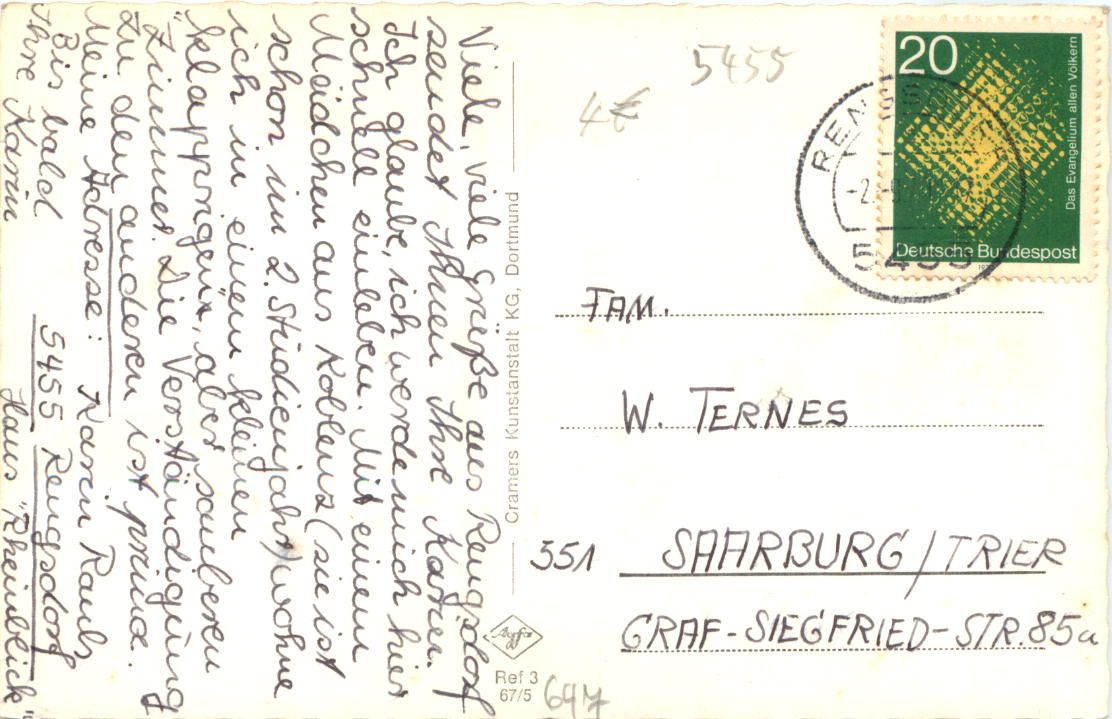 Viele, viele Grüße aus Rengsdorf
sendet Ihnen Ihre Karin.
Ich glaube, ich werde mich hier
schnell einleben. Mit einem
Mädchen aus Koblenz (sie ist
schon im 2. Studienjahr) wohne
ich in einem kleinen
"klapprigen", aber sauberen
Zimmer. Die Verständigung
zu den anderen ist prima.
Meine Adresse: Karin Raub
Bis bald 5455 Rengsdorf
Ihre Karin Haus "Rheinblick"
Cramers Kunstanstalt KG, Dortmund
Agfa
Ref 3
67/5
647
5455
4€
20
Das Evangelium allen Völkern
Deutsche Bundespost
5455
FAM.
W. TERNES
351 SAARBURG/TRIER
GRAF-SIEGFRIED-STR. 85a